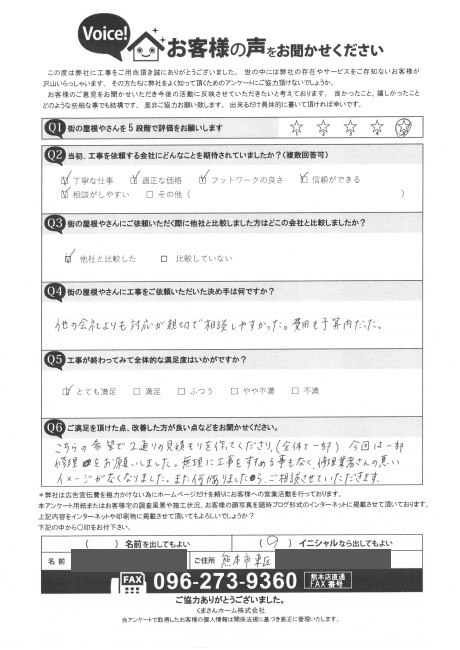 Voice!
お客様の声をお聞かせください
この度は弊社に工事をご用命頂き誠にありがとうございました。世の中には弊社の存在やサービスをご存知ないお客様が
沢山いらっしゃいます。その方たちに弊社をよく知って頂くためのアンケートにご協力頂けないでしょうか。
お客様のご意見をお聞かせいただき今後の活動に反映させていただきたいと考えております。良かったこと、嬉しかったこと
どのような些細な事でも結構です。是非ご協力お願い致します。出来るだけ具体的に書いて頂ければ幸いです。
Q1 街の屋根やさんを5段階で評価をお願いします
1 2 3 4 5
Q2 当初、工事を依頼する会社にどんなことを期待されていましたか？(複数回答可)
☑ 丁寧な仕事 ☑ 適正な価格 ☑ フットワークの良さ ☑ 信頼ができる
☑ 相談がしやすい □ その他（ ）
Q3 街の屋根やさんにご依頼いただく際に他社と比較しました方はどこの会社と比較しましたか？
☑ 他社と比較した □ 比較していない
Q4 街の屋根やさんに工事をご依頼いただいた決め手は何ですか？
他の会社よりも対応が親切で相談しやすかった。費用も予算内だった。
Q5 工事が終わってみて全体的な満足度はいかがですか？
☑ とても満足 □ 満足 □ ふつう □ やや不満 □ 不満
Q6 ご満足を頂けた点、改善した方が良い点などをお聞かせください。
こちらの希望で2通りの見積もりを作てくださり、(全体と一部) 今回は一部
修理をお願いしました。無理に工事をすすめる事もなく、修理業者さんの悪い
イメージがなくなりました。また何かありましたら、ご相談させていただきます。
＊弊社は広告宣伝費を極力かけない為にホームページだけを頼りにお客様への営業活動を行っております。
本アンケート用紙またはお客様宅の調査風景や施工状況、お客様の顔写真を随時ブログ形式のインターネットに掲載させて頂いております。
上記内容をインターネットや印刷物に掲載させて頂いてもよろしいでしょうか？
下記の中から〇印をお付下さい。
（ ）名前を出してもよい （〇）イニシャルなら出してもよい
名前 ご住所 熊本市東区
FAX 096-273-9360 熊本店直通 FAX番号
ご協力ありがとうございました。
くまさんホーム株式会社
当アンケートで取得したお客様の個人情報は関係法規に基づき厳正に管理いたします。